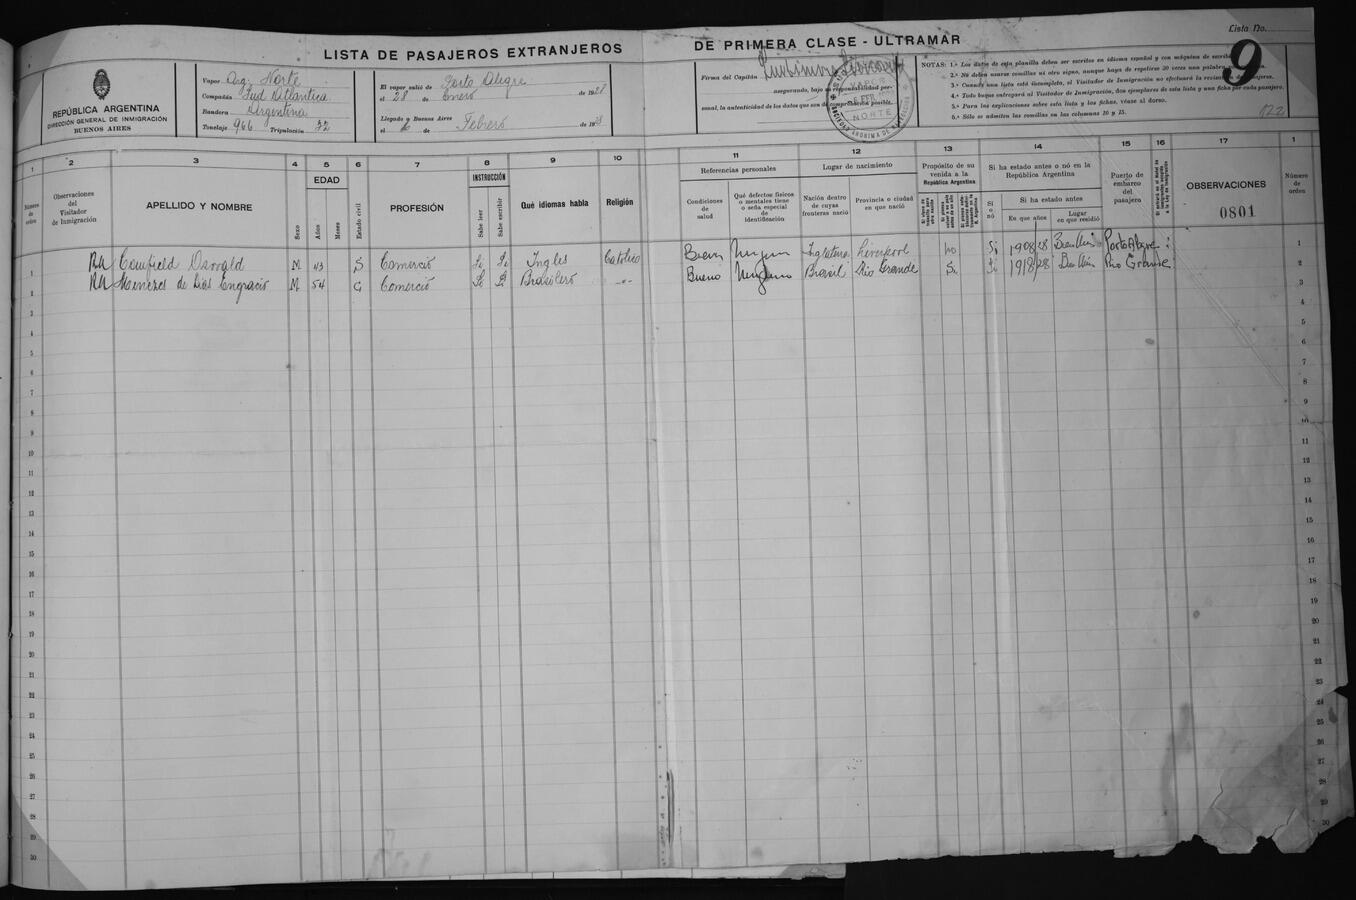 Lista No.
9
122
LISTA DE PASAJEROS EXTRANJEROS DE PRIMERA CLASE - ULTRAMAR
REPÚBLICA ARGENTINA
DIRECCIÓN GENERAL DE INMIGRACIÓN
BUENOS AIRES
Vapor Arg. Norte
Compañía Sud Atlantica
Bandera Argentina
Tonelaje 966 Tripulación 32
El vapor salió de Porto Alegre
el 28 de Enero de 192
Llegado a Buenos Aires
el de Febrero de 19
Firma del Capitán
asegurando, bajo su responsabilidad personal, la autenticidad de los datos que son de comprobación posible.
VAPOR
NORTE
NOTAS: 1.ª Los datos de esta planilla deben ser escritos en idioma español y con máquina de escribir
2.ª No deben usarse comillas ni otro signo, aunque haya de repetirse 30 veces una palabra
3.ª Cuando una lista está incompleta, el Visitador de Inmigración no efectuará la pasajeros.
4.ª Todo buque entregará al Visitador de Inmigración, dos ejemplares de esta lista y una ficha por cada pasajero.
5.ª Para las explicaciones sobre esta lista y las fichas, véase al dorso.
6.ª Sólo se admiten las comillas en las columnas 10 y 15.
1 2 3 4 5 6 7 8 9 10 11 12 13 14 15 16 17 1
Número de orden
Observaciones del Visitador de Inmigración
APELLIDO Y NOMBRE
Sexo
EDAD
Años
Meses
Estado civil
PROFESIÓN
INSTRUCCIÓN
Sabe leer
Sabe escribir
Qué idiomas habla
Religión
Referencias personales
Condiciones de salud
Qué defectos físicos o mentales tiene o seña especial de identificación
Lugar de nacimiento
Nación dentro de cuyas fronteras nació
Provincia o ciudad en que nació
Propósito de su venida a la República Argentina
Si ha estado antes o nó en la República Argentina
Sí o nó
Si ha estado antes
En que años
Lugar en que residió
Puerto de embarco del pasajero
OBSERVACIONES
0801
Número de orden
Oswald M 43 S Comercio Si Si Ingles Catolico Buena Inglaterra Liverpool no Si 1908/28 Porto Alegre
Menezes de Dias Engracio M 54 C Comercio Si Si Brasilero -"- Bueno Ninguno Brasil Rio Grande Si Si 1918/28 Rio Grande